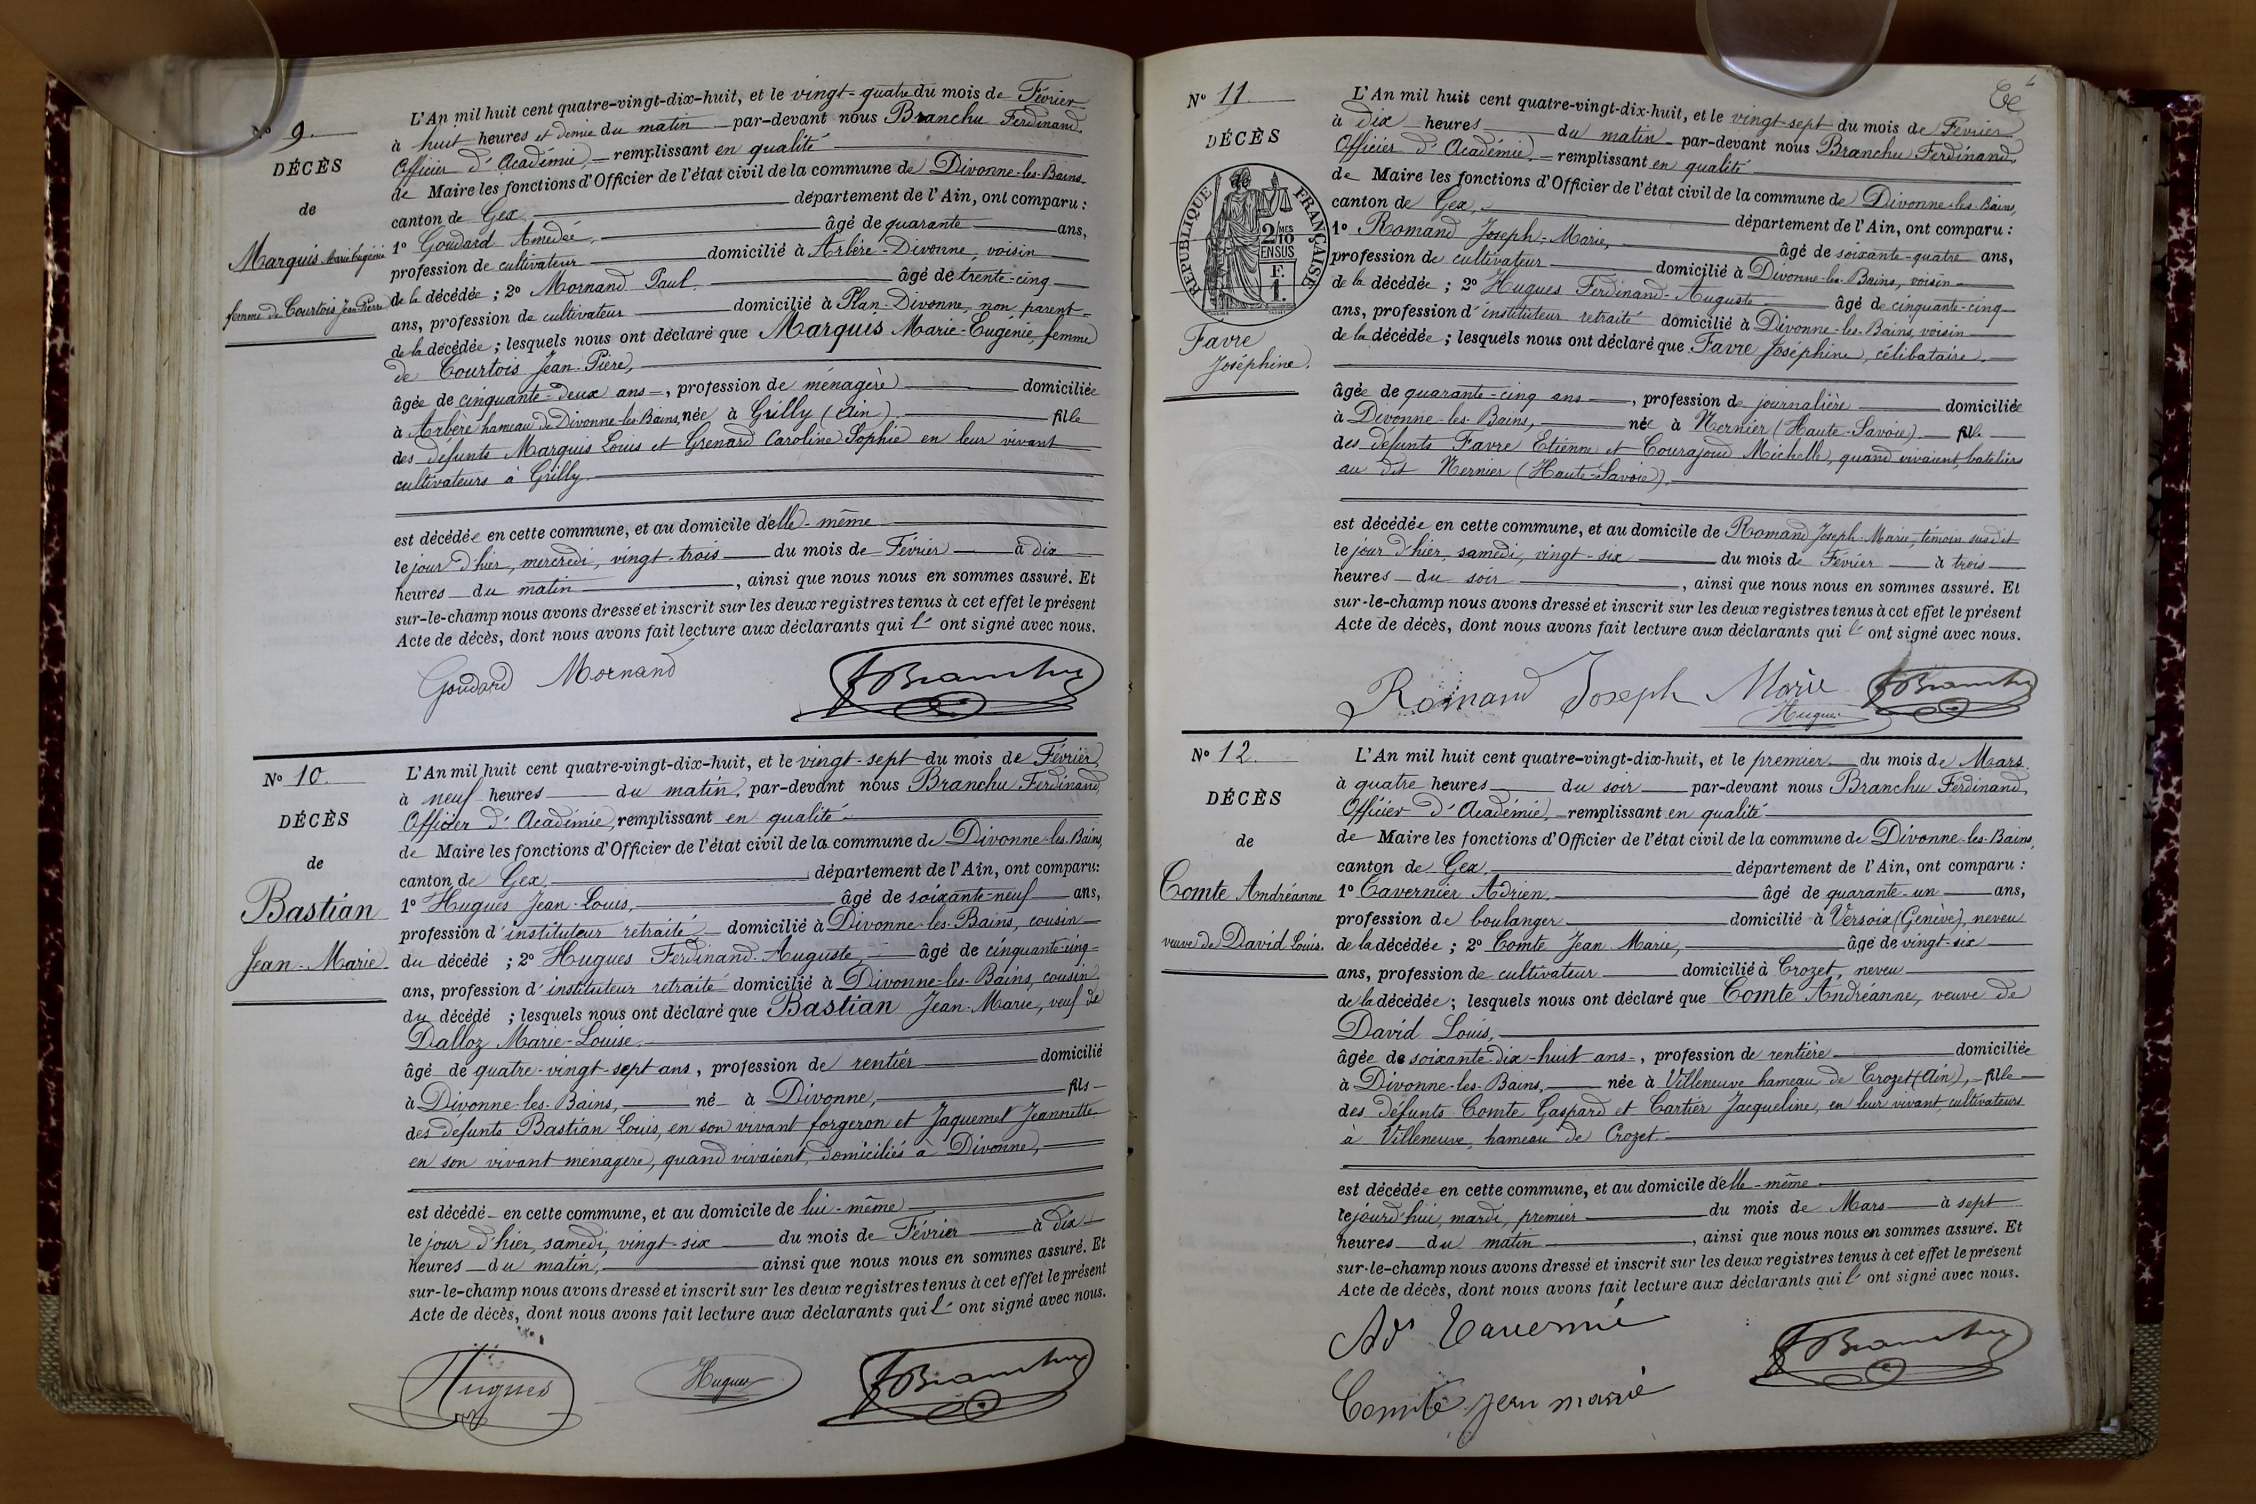 N° 9.
DÉCÈS
de
Marquis Marie Eugénie
femme de Courtois Jean-Pierre
L'An mil huit cent quatre-vingt-dix-huit, et le vingt-quatre du mois de Février
à huit heures et demie du matin par-devant nous Branchu Ferdinand,
Officier d'Académie, remplissant en qualité
de Maire les fonctions d'Officier de l'état civil de la commune de Divonne-les-Bains
canton de Gex, département de l'Ain, ont comparu :
1° Goudard Amédée, âgé de quarante ans,
profession de cultivateur domicilié à Arbère-Divonne, voisin
de la décédée ; 2° Mornand Paul. âgé de trente-cinq
ans, profession de cultivateur domicilié à Plan-Divonne, non parent
de la décédée ; lesquels nous ont déclaré que Marquis Marie-Eugénie, femme
de Courtois Jean-Pière,
âgée de cinquante-deux ans, profession de ménagère domiciliée
à Arbère hameau de Divonne-les-Bains, née à Grilly (Ain). fille
des défunts Marquis Louis et Grenard Caroline Sophie en leur vivant
cultivateurs à Grilly.
est décédée en cette commune, et au domicile d'elle-même
le jour d'hier, mercredi, vingt-trois du mois de Février à dix
heures du matin, ainsi que nous nous en sommes assuré. Et
sur-le-champ nous avons dressé et inscrit sur les deux registres tenus à cet effet le présent
Acte de décès, dont nous avons fait lecture aux déclarants qui l' ont signé avec nous.
Goudard Mornand FBranchu
N° 10.
DÉCÈS
de
Bastian
Jean-Marie.
L'An mil huit cent quatre-vingt-dix-huit, et le vingt-sept du mois de Février,
à neuf heures du matin, par-devant nous Branchu Ferdinand,
Officier d'Académie, remplissant en qualité
de Maire les fonctions d'Officier de l'état civil de la commune de Divonne-les-Bains,
canton de Gex, département de l'Ain, ont comparu:
1° Hugues Jean-Louis, âgé de soixante-neuf ans,
profession d'instituteur retraité domicilié à Divonne-les-Bains, cousin
du décédé ; 2° Hugues Ferdinand-Auguste, âgé de cinquante-cinq
ans, profession d'instituteur retraité domicilié à Divonne-les-Bains, cousin
du décédé ; lesquels nous ont déclaré que Bastian Jean-Marie, veuf de
Dalloz Marie-Louise.
âgé de quatre-vingt-sept ans, profession de rentier domicilié
à Divonne-les-Bains, né à Divonne, fils
des défunts Bastian Louis, en son vivant forgeron et Jaquemet Jeannette
en son vivant ménagère, quand vivaient, domiciliés à Divonne,
est décédé en cette commune, et au domicile de lui-même
le jour d'hier, samedi, vingt-six du mois de Février à dix
heures du matin, ainsi que nous nous en sommes assuré. Et
sur-le-champ nous avons dressé et inscrit sur les deux registres tenus à cet effet le présent
Acte de décès, dont nous avons fait lecture aux déclarants qui l' ont signé avec nous.
Hugues Hugues FBranchu
N° 11.
DÉCÈS
REPUBLIQUE FRANÇAISE
2/10MES
EN SUS
F.
1.
Favre
Joséphine.
L'An mil huit cent quatre-vingt-dix-huit, et le vingt sept du mois de Février
à dix heures du matin par-devant nous Branchu Ferdinand,
Officier d'Académie, remplissant en qualité
de Maire les fonctions d'Officier de l'état civil de la commune de Divonne-les-Bains,
canton de Gex, département de l'Ain, ont comparu :
1° Romand Joseph-Marie, âgé de soixante-quatre ans,
profession de cultivateur domicilié à Divonne-les-Bains, voisin
de la décédée ; 2° Hugues Ferdinand-Auguste âgé de cinquante-cinq
ans, profession d'instituteur retraité domicilié à Divonne-les-Bains, voisin
de la décédée ; lesquels nous ont déclaré que Favre Joséphine, célibataire.
âgée de quarante-cinq ans, profession de journalière domiciliée
à Divonne-les-Bains, née à Nernier (Haute-Savoie). fille
des défunts Favre Etienne et Courajoud Michelle, quand vivaient, bateliers
au dit Nernier (Haute-Savoie).
est décédée en cette commune, et au domicile de Romand Joseph-Marie, témoin susdit
le jour d'hier, samedi, vingt-six du mois de Février à trois
heures du soir, ainsi que nous nous en sommes assuré. Et
sur-le-champ nous avons dressé et inscrit sur les deux registres tenus à cet effet le présent
Acte de décès, dont nous avons fait lecture aux déclarants qui l' ont signé avec nous.
Romand Joseph Marie FBranchu
Hugues
N° 12.
DÉCÈS
de
Comte Andréanne
veuve de David Louis.
L'An mil huit cent quatre-vingt-dix-huit, et le premier du mois de Mars
à quatre heures du soir par-devant nous Branchu Ferdinand,
Officier d'Académie, remplissant en qualité
de Maire les fonctions d'Officier de l'état civil de la commune de Divonne-les-Bains,
canton de Gex, département de l'Ain, ont comparu :
1° Tavernier Adrien. âgé de quarante-un ans,
profession de boulanger domicilié à Versoix (Genève), neveu
de la décédée ; 2° Comte Jean Marie, âgé de vingt-six
ans, profession de cultivateur domicilié à Crozet, neveu
de la décédée ; lesquels nous ont déclaré que Comte Andréanne, veuve de
David Louis,
âgée de soixante-dix-huit ans, profession de rentière domiciliée
à Divonne-les-Bains, née à Villeneuve hameau de Crozet (Ain), fille
des défunts Comte Gaspard et Cartier Jacqueline, en leur vivant, cultivateurs
à Villeneuve, hameau de Crozet.
est décédée en cette commune, et au domicile d'elle-même
le jourd'hui, mardi, premier du mois de Mars à sept
heures du matin, ainsi que nous nous en sommes assuré. Et
sur-le-champ nous avons dressé et inscrit sur les deux registres tenus à cet effet le présent
Acte de décès, dont nous avons fait lecture aux déclarants qui l' ont signé avec nous.
Adn Tavernié FBranchu
Comte jean marie